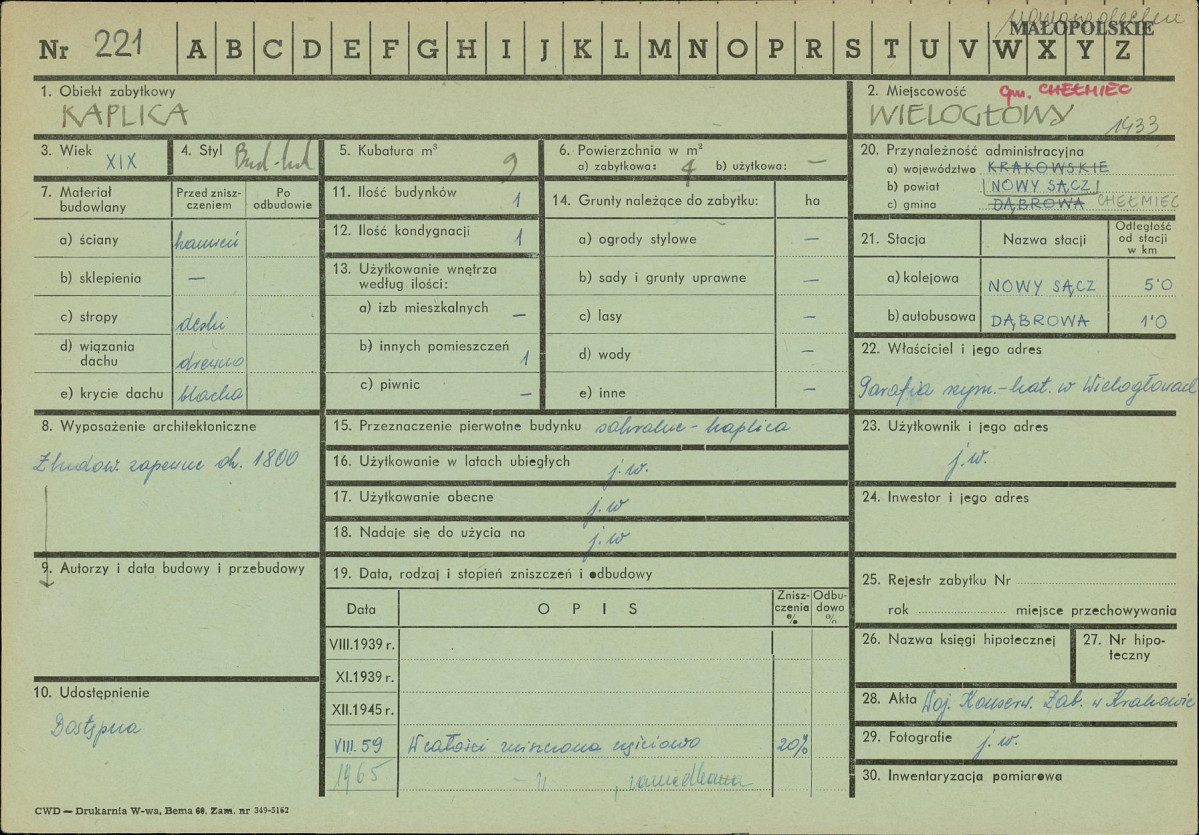 MAŁOPOLSKIE
Nr 221 A B C D E F G H I J K L M N O P R S T U V W X Y Z
1. Obiekt zabytkowy
KAPLICA
2. Miejscowość gm. CHEŁMIEC
WIELOGŁOWY
1433
3. Wiek
XIX
4. Styl
5. Kubatura m³
9
6. Powierzchnia w m²
a) zabytkowa: 4 b) użytkowa: —
20. Przynależność administracyjna
a) województwo KRAKOWSKIE
b) powiat NOWY SĄCZ
c) gmina DĄBROWA CHEŁMIEC
7. Materiał budowlany
Przed zniszczeniem
Po odbudowie
a) ściany kamień
b) sklepienia —
c) stropy deski
d) wiązania dachu drewno
e) krycie dachu blacha
11. Ilość budynków 1
12. Ilość kondygnacji 1
13. Użytkowanie wnętrza
według ilości:
a) izb mieszkalnych —
b) innych pomieszczeń 1
c) piwnic —
14. Grunty należące do zabytku: ha
a) ogrody stylowe —
b) sady i grunty uprawne —
c) lasy —
d) wody —
e) inne —
21. Stacja Nazwa stacji Odległość od stacji w km
a) kolejowa NOWY SĄCZ 5'0
b) autobusowa DĄBROWA 1'0
22. Właściciel i jego adres
Parafia rzym.-kat. w Wielogłowach
8. Wyposażenie architektoniczne
Zbudow. zapewne ok. 1800
15. Przeznaczenie pierwotne budynku sakralne - kaplica
16. Użytkowanie w latach ubiegłych j.w.
17. Użytkowanie obecne j.w
18. Nadaje się do użycia na j.w
23. Użytkownik i jego adres
j.w.
24. Inwestor i jego adres
9. Autorzy i data budowy i przebudowy
19. Data, rodzaj i stopień zniszczeń i odbudowy
Data OPIS Zniszczenia % Odbudowa %
VIII.1939 r.
XI.1939 r.
XII.1945 r.
VIII.59 W całości zniszczona częściowo 20%
1965 - " , zaniedbana
25. Rejestr zabytku Nr
rok miejsce przechowywania
26. Nazwa księgi hipotecznej
27. Nr hipoteczny
10. Udostępnienie
Dostępna
28. Akta Woj. Konserw. Zab. w Krakowie
29. Fotografie j.w.
30. Inwentaryzacja pomiarowa
CWD — Drukarnia W-wa, Bema 60. Zam. nr 349-5162